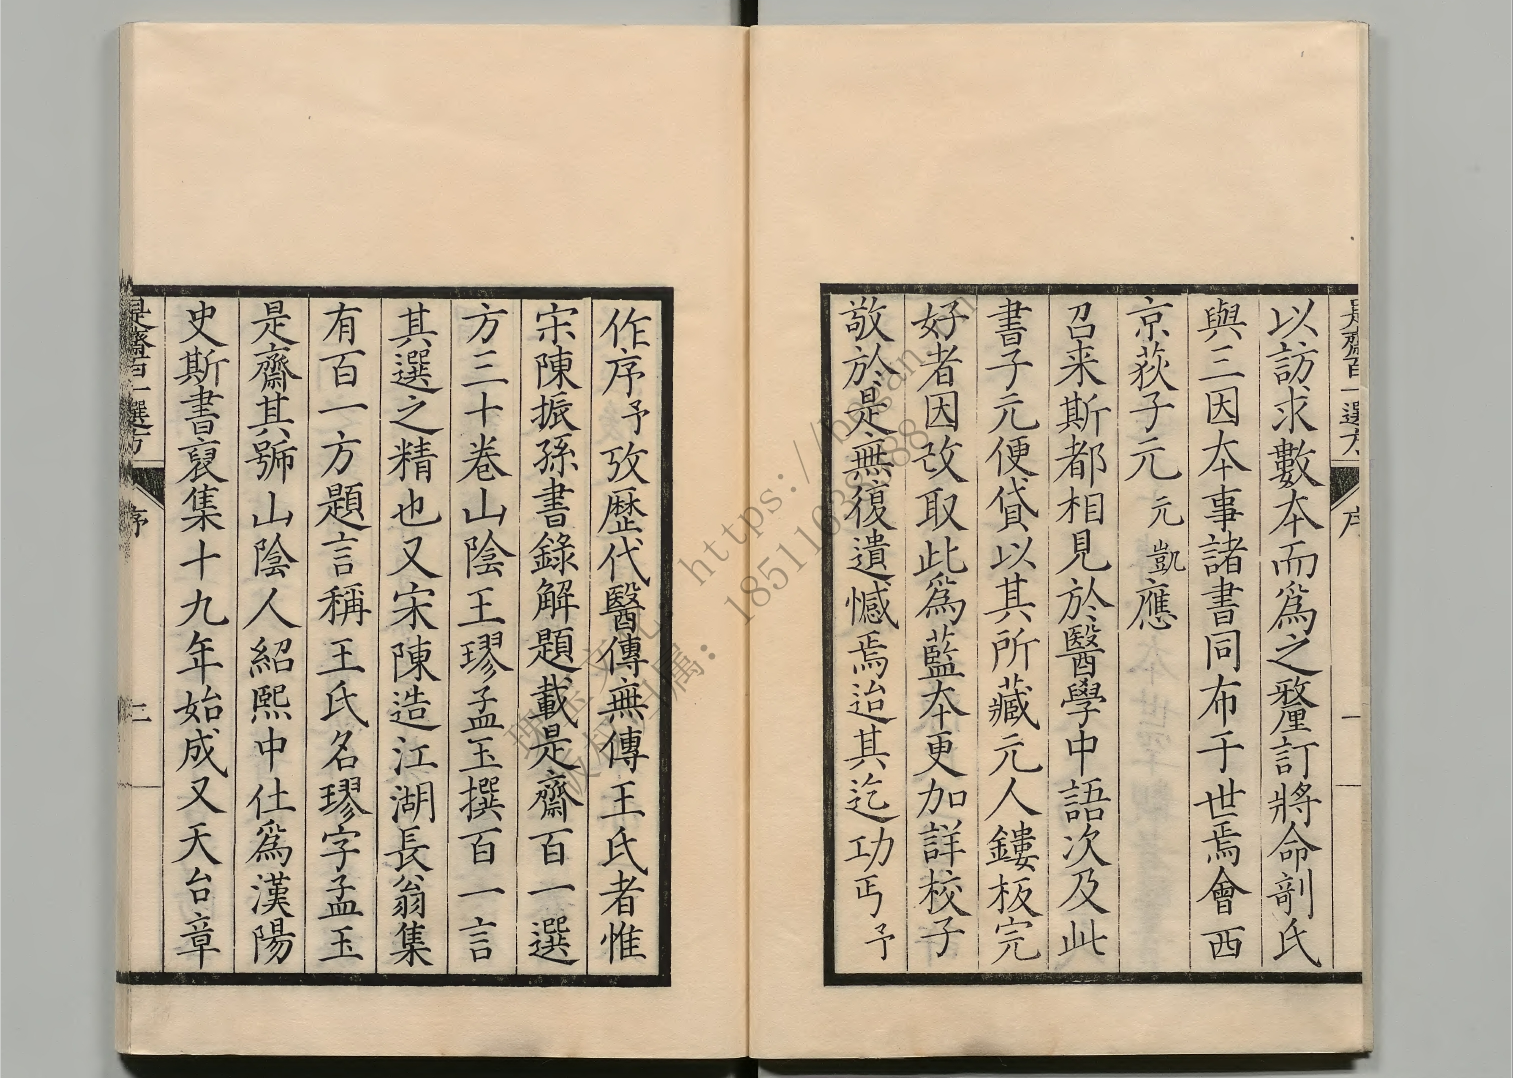 是齋百一選方 序 一
以訪求數本而爲之釐訂將命剞氏
與三因本事諸書同布于世焉會西
京荻子元元凱應
召来斯都相見於醫學中語次及此
書子元便貸以其所藏元人鏤板完
好者因改取此爲藍本更加詳校子
敬於是無復遺憾焉迨其迄功丐予
作序予攷歷代醫傳無傳王氏者惟
宋陳振孫書錄解題載是齋百一選
方三十卷山陰王璆孟玉撰百一言
其選之精也又宋陳造江湖長翁集
有百一方題言稱王氏名璆字孟玉
是齋其號山陰人紹熙中仕爲漢陽
史斯書裒集十九年始成又天台章
是齋百一選方 序 二
https://